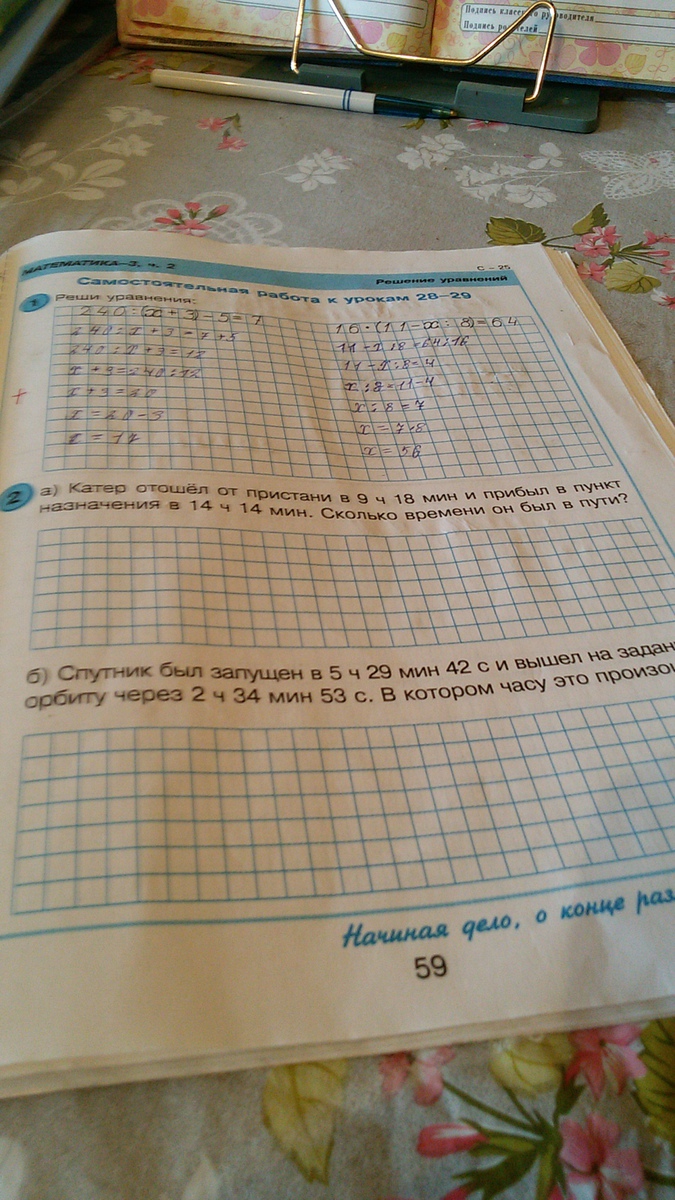 Подпись классного руководителя
Подпись родителей
МАТЕМАТИКА–3, ч. 2
С – 25
Самостоятельная работа к урокам 28–29
Решение уравнений
1 Реши уравнения:
240 : (x + 3) – 5 = 7
240 : x + 3 = 7 + 5
240 : x + 3 = 12
x + 3 = 240 : 12
x + 3 = 20
x = 20 – 3
x = 17
+
16 · (11 – x : 8) = 64
11 – x : 8 = 64 : 16
11 – x : 8 = 4
x : 8 = 11 – 4
x : 8 = 7
x = 7 · 8
x = 56
2 а) Катер отошёл от пристани в 9 ч 18 мин и прибыл в пункт
назначения в 14 ч 14 мин. Сколько времени он был в пути?
б) Спутник был запущен в 5 ч 29 мин 42 с и вышел на задан
орбиту через 2 ч 34 мин 53 с. В котором часу это произо
Начиная дело, о конце раз
59